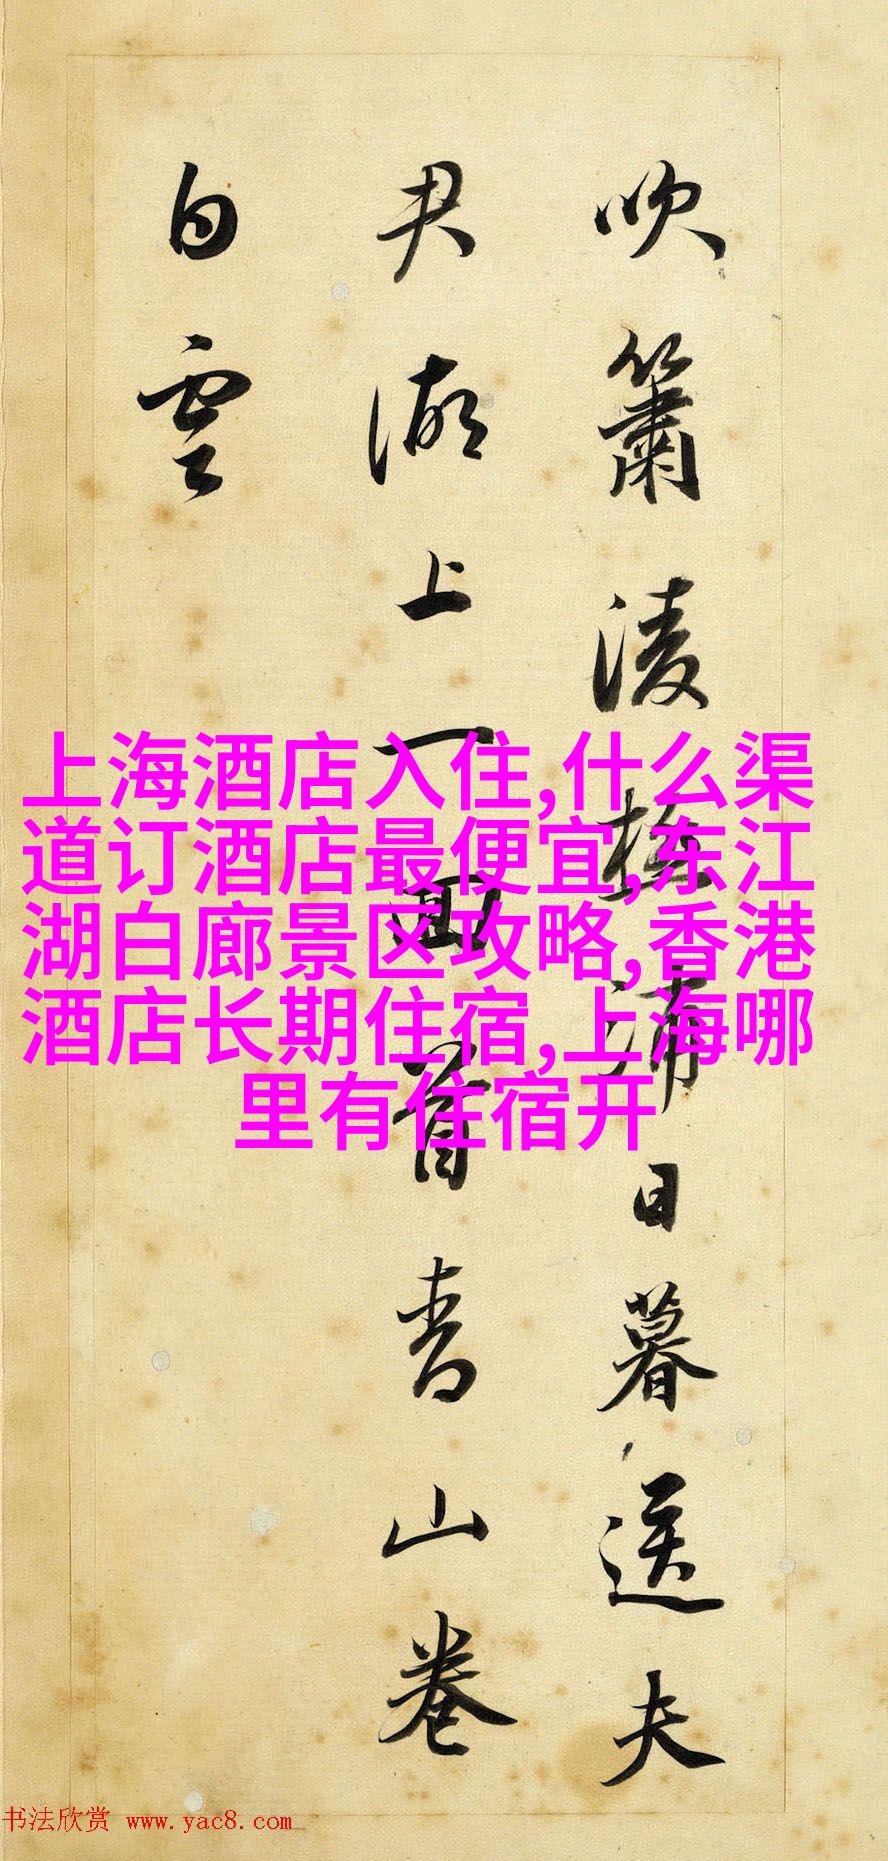 吹簫淩極浦日暮送夫
君湖上一回首青山卷
白雲
上海酒店入住,什么渠
道订酒店最便宜,东江
湖白廊景区攻略,香港
酒店长期住宿,上海哪
里有住宿开
书法欣赏 www.yac8.com